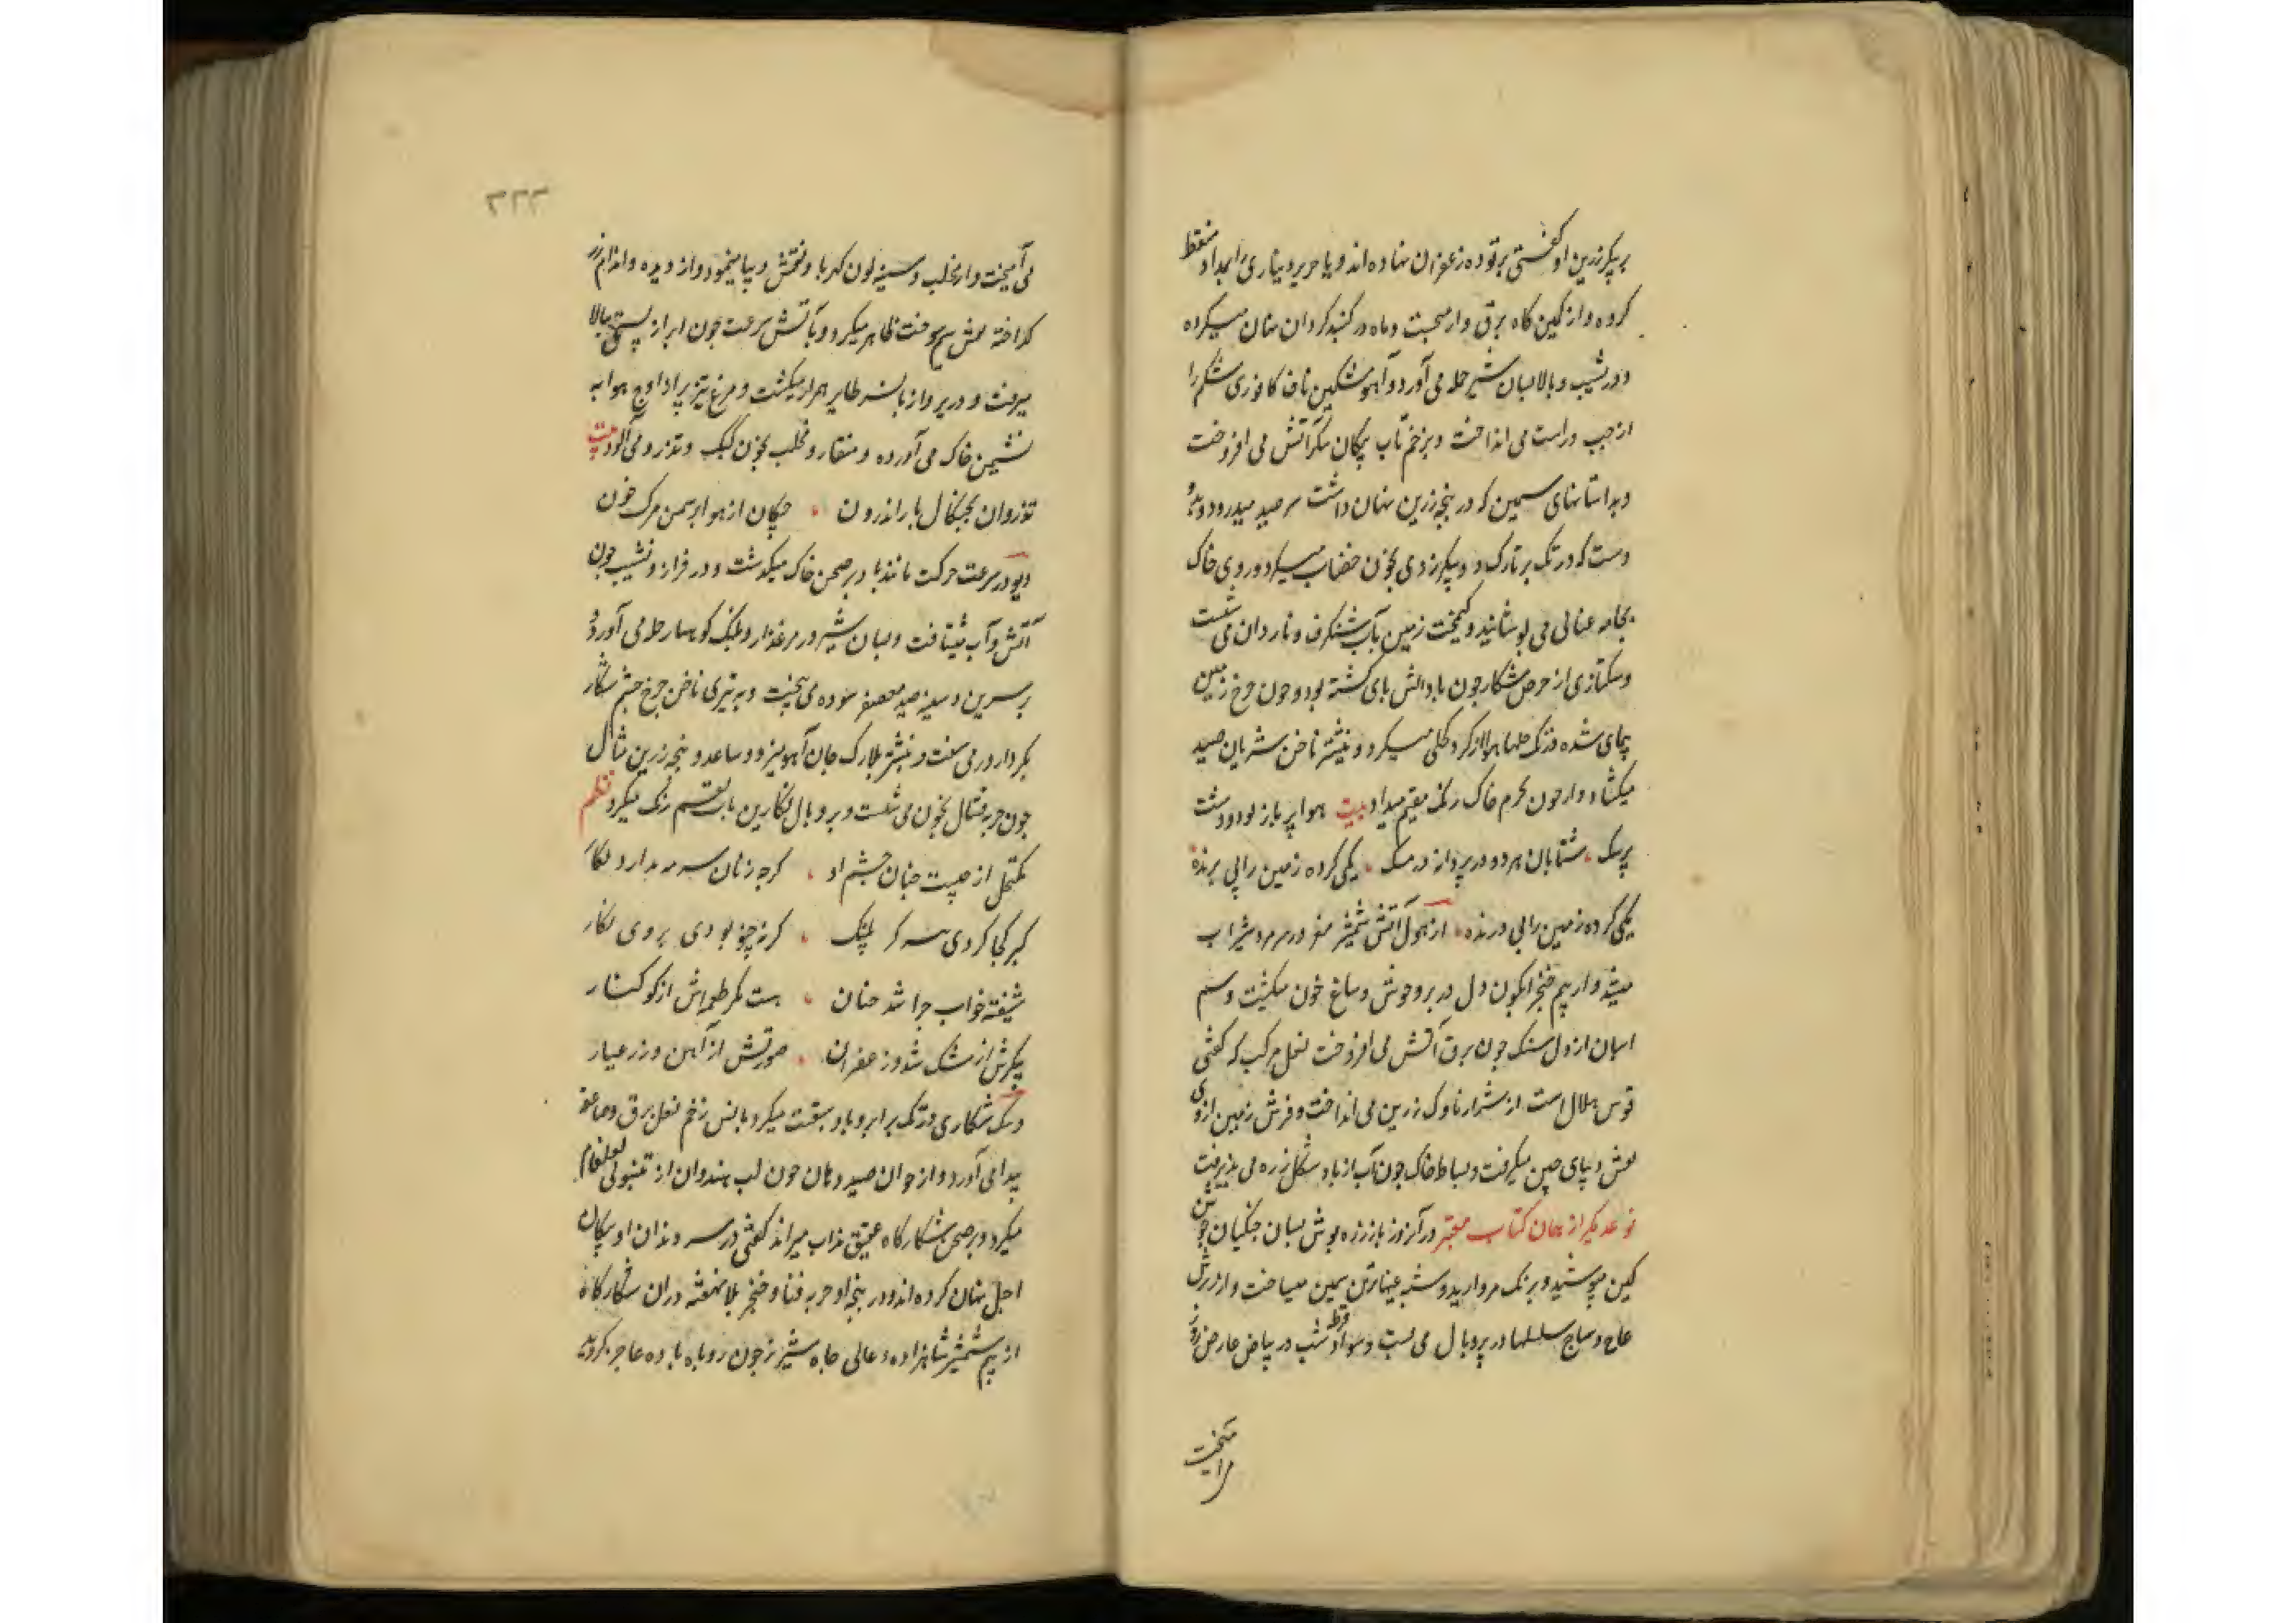 بر پیکر زرین او گفتی بر توده زعفران نهاده اند و یا حریر دیناری را بمداد منقط
کرده و از کمین کاه برق وار میجست و ماه در کنبد کردان نهان میکرده
و در نشیب و بالا بسان شیر حمله می آورد و آهو مشکین ناف کافوری شکم را
از چپ و راست می انداخت و بزخم تاب پیکان پیکر آتش می افروخت
و بداسهای سیمین که در پنجه زرین نهان داشت سر صید میدرود و بدو
دست که در تک بر تارک دو پیکر زدی بخون خضاب میکرد و روی خاک
بجامه عنابی می پوشانید و کیمخت زمین بآب شنکرف و ناردان می شست
و سک تازی از حرص شکار چون باد آتش پای کشته بود و چون چرخ زمین
پیمای شده در تک حلها هوا از کرد کحلی میکرد و بنیشتر ناخن شریان صید
میکشاد و از خون محرم خاک رنک بقم میداد بیت هوا پر باز بود و دشت
پر سک شتابان هر دو در پرواز و در تک یکی کرده زمین را بی پرنده
یکی کرده زمین را بی درنده از هول آتش شمشیر مغز در سر شیر آب
میشد و از بیم خنجر آبگون دل در بر وحوش و سباع خون میکشت و سم
اسبان از دل سنک چون برق آتش می افروخت نعل مرکب که گفتی
قوس هلال است از شرار ناوک زرین می انداخت و فرش زمین از وی
نقش دیبای چین میکرفت و بساط خاک چون آب از باد شکل زره می پذیرفت
نوعدیکر از همان کتاب معتبر در آنروز باز زره پوش بسان جنکیان جوشن
کین میپوشید و برنک مروارید و شبه عیبه تن سیمین میساخت و از رنک
عاج و ساج سلسلها در پر و بال می بست و سواد نقطه شب در بیاض عارض روز
می آمیخت
می آمیخت و از مخلب و سینه لون کهربا و نقش دیبا مینمود و از دیده و اندام زر
کداخته نقش سیم سوخت ظاهر میکرد و بآتش سرعت چون ابر از پستی ببالا
میرفت و در پرواز با نسر طایر همراز میکشت و مرغ تیز پر از اوج هوا به
نشیمن خاک می آورده و منقار و مخلب بخون کبک و تذرو می آلود بیت
تذروان بچنکال باز اندرون چکان از هوا بر سمن برک خون
و یوز در سرعت حرکت مانند باد بر صحن خاک میکذشت و در فراز و نشیب چون
آتش و آب میشتافت و بسان شیر در مرغزار و پلنک کوهسار حمله می آورد و
بر سرین و سینه صید معصفر سوده می بیخت و به تیزی ناخن چرخ چشم شکار
بکردار در می سفت و بنیشتر بلارک جان آهو میزد و ساعد و پنجه زرین مثال
چون حربه قتال بخون می شست و بر و بال نکارین بآب بقم رنک میکرد نظم
مکتحل از چیست چنان چشم او کرچه زنان سرمه ندارد بکار
کبر کجا کردی سر کر پلنک کر نه چنو بودی بروی نکار
شیفته خواب چرا شد چنان هست مکر طعمه اش از کوکنار
پیکرش از مشک شد و زعفران صورتش از آهن و زر عیار
و سک شکاری در تک بر ابر و باد سبقت میکرد بانس زخم نعل برق و صاعقه
پیدا می آورد و از خوان صید دهان چون لب هندوان از تنبول لعلفام
میکرد و بر صحن شکارکاه عقیق مذاب میراند گفتی در سر دندان او پیکان
اجل نهان کرده اند و در پنجه او حربه فنا و خنجر بلا نهفته در آن شکارکاه
از بیم شمشیر شاهزاده عالی جاه شیر نر چون روباه ماده عاجز کردید
۲۲۳